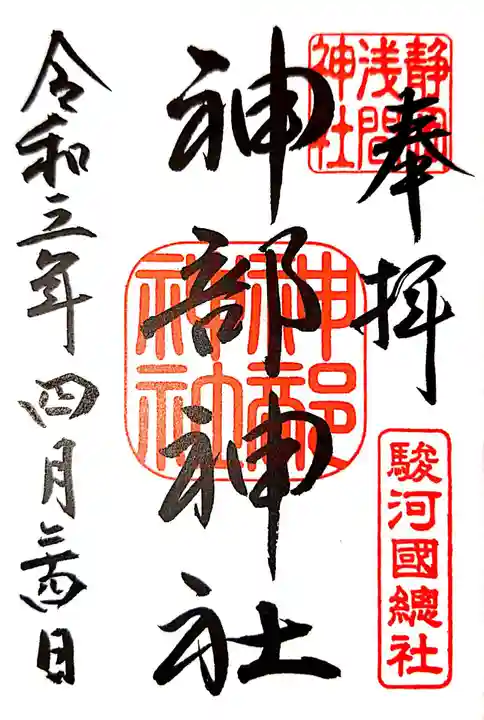 奉拝
静岡
浅間
神社
駿河國總社
神部神社
神部
神社
令和三年四月二四日